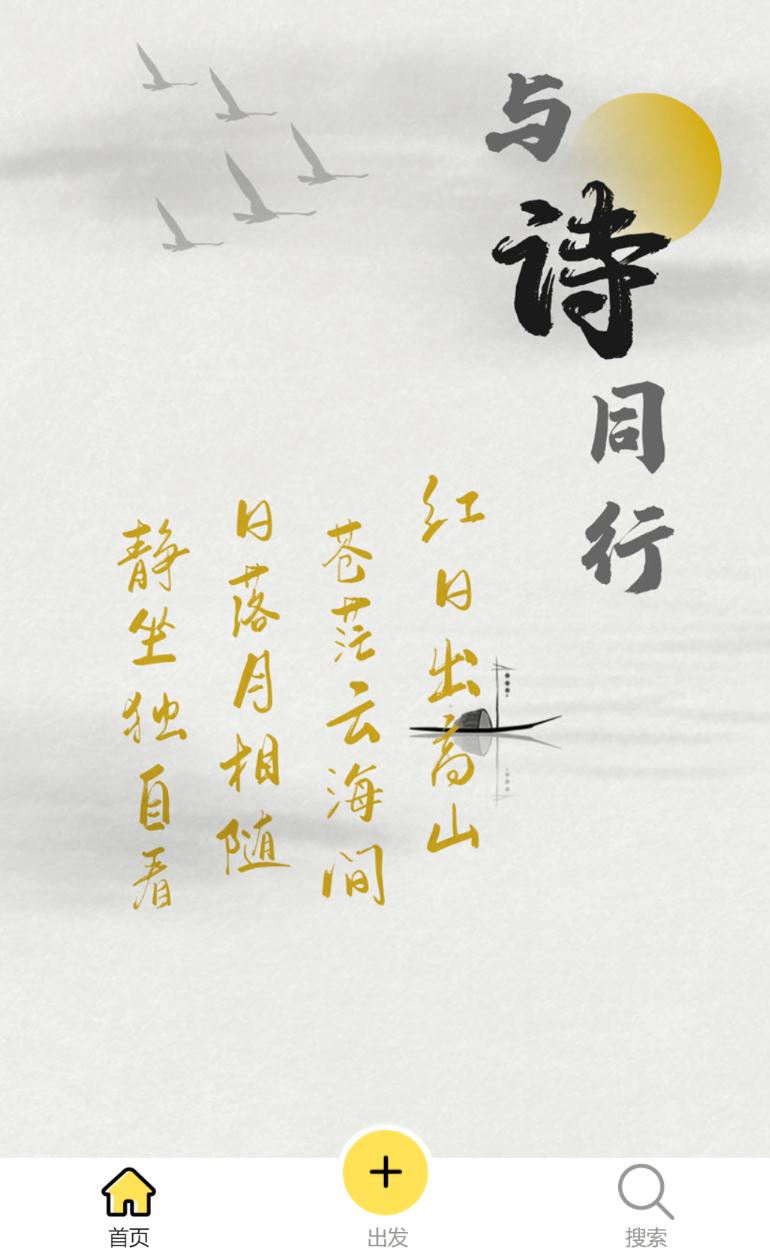 与诗同行
红日出高山
苍茫云海间
日落月相随
静坐独自看
首页
出发
搜索